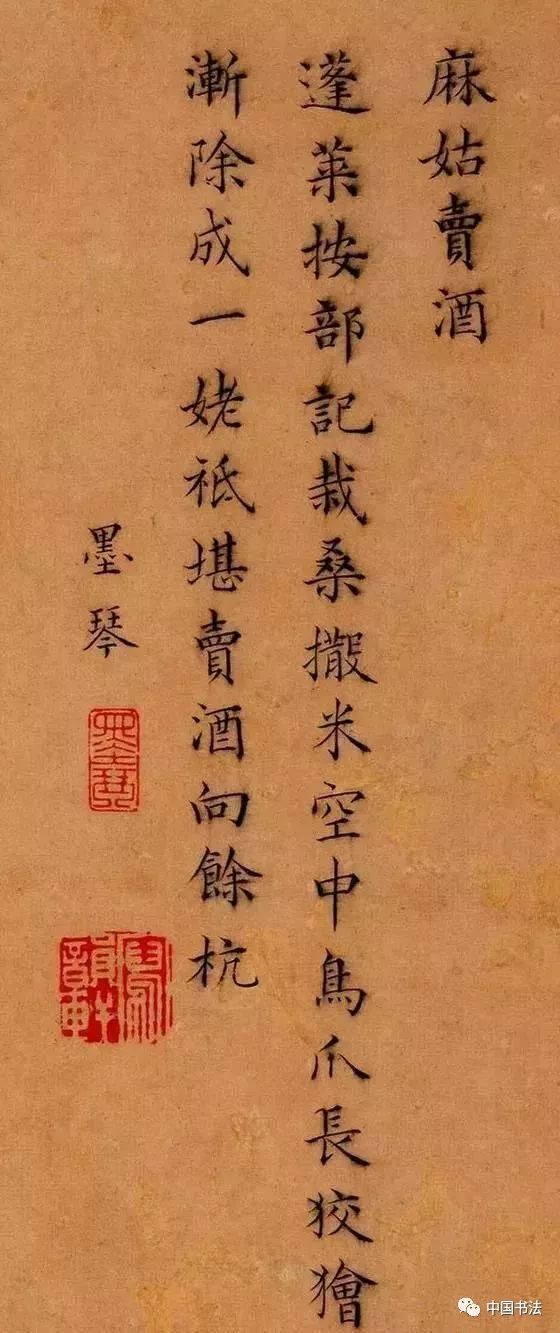 麻姑賣酒
蓬萊按部記栽桑撒米空中鳥爪長狡獪
漸除成一姥祗堪賣酒向餘杭
墨琴
墨琴
中国书法